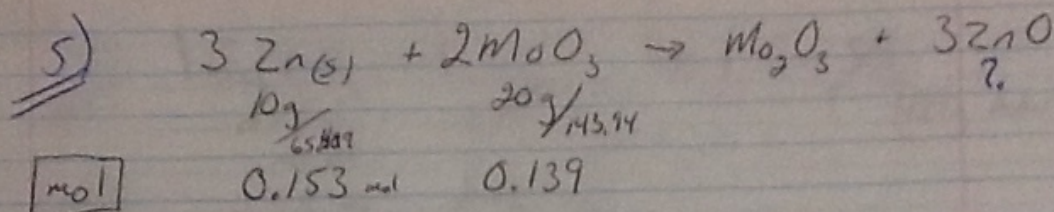 5) 3 Zn(s) + 2MoO₃ → Mo₂O₃ + 3ZnO
10g/ 20g/143.94 ?
mol 0.153 mol 0.139